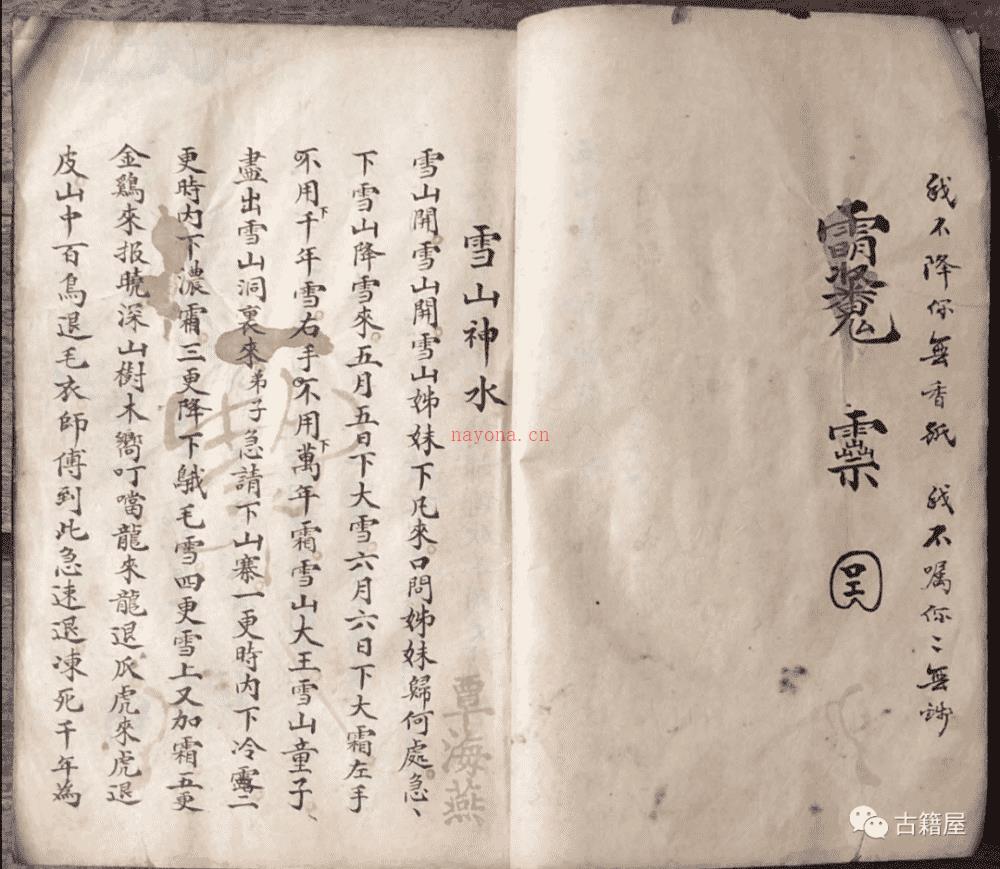 我不降你無香紙 我不嘱你〻無
雪山神水
雪山開雪山開雪山姊妹下凡來口問姊妹歸何處急、
下雪山降雪來五月五日下大雪六月六日下大霜左手
不用下千年雪右手不用下萬年霜雪山大王雪山童子、
盡出雪山洞裏來弟子急請下山寨一更時内下冷露二
更時内下濃霜三更降下鵞毛雪四更雪上又加霜五更
金鷄來报曉深山樹木嚮叮噹龍來龍退爪虎來虎退
皮山中百鳥退毛衣師傅到此急速退凍死千年為
覃海燕
nayona.cn
古籍屋